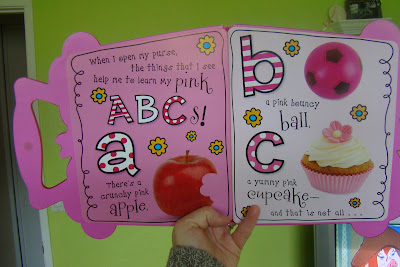 When I open my purse,
the things that I see
help me to learn my pink
ABCs!
a
There's a
crunchy pink
apple,
b
a pink bouncy
ball,
c
a yummy pink
cupcake—
and that is not all . . .